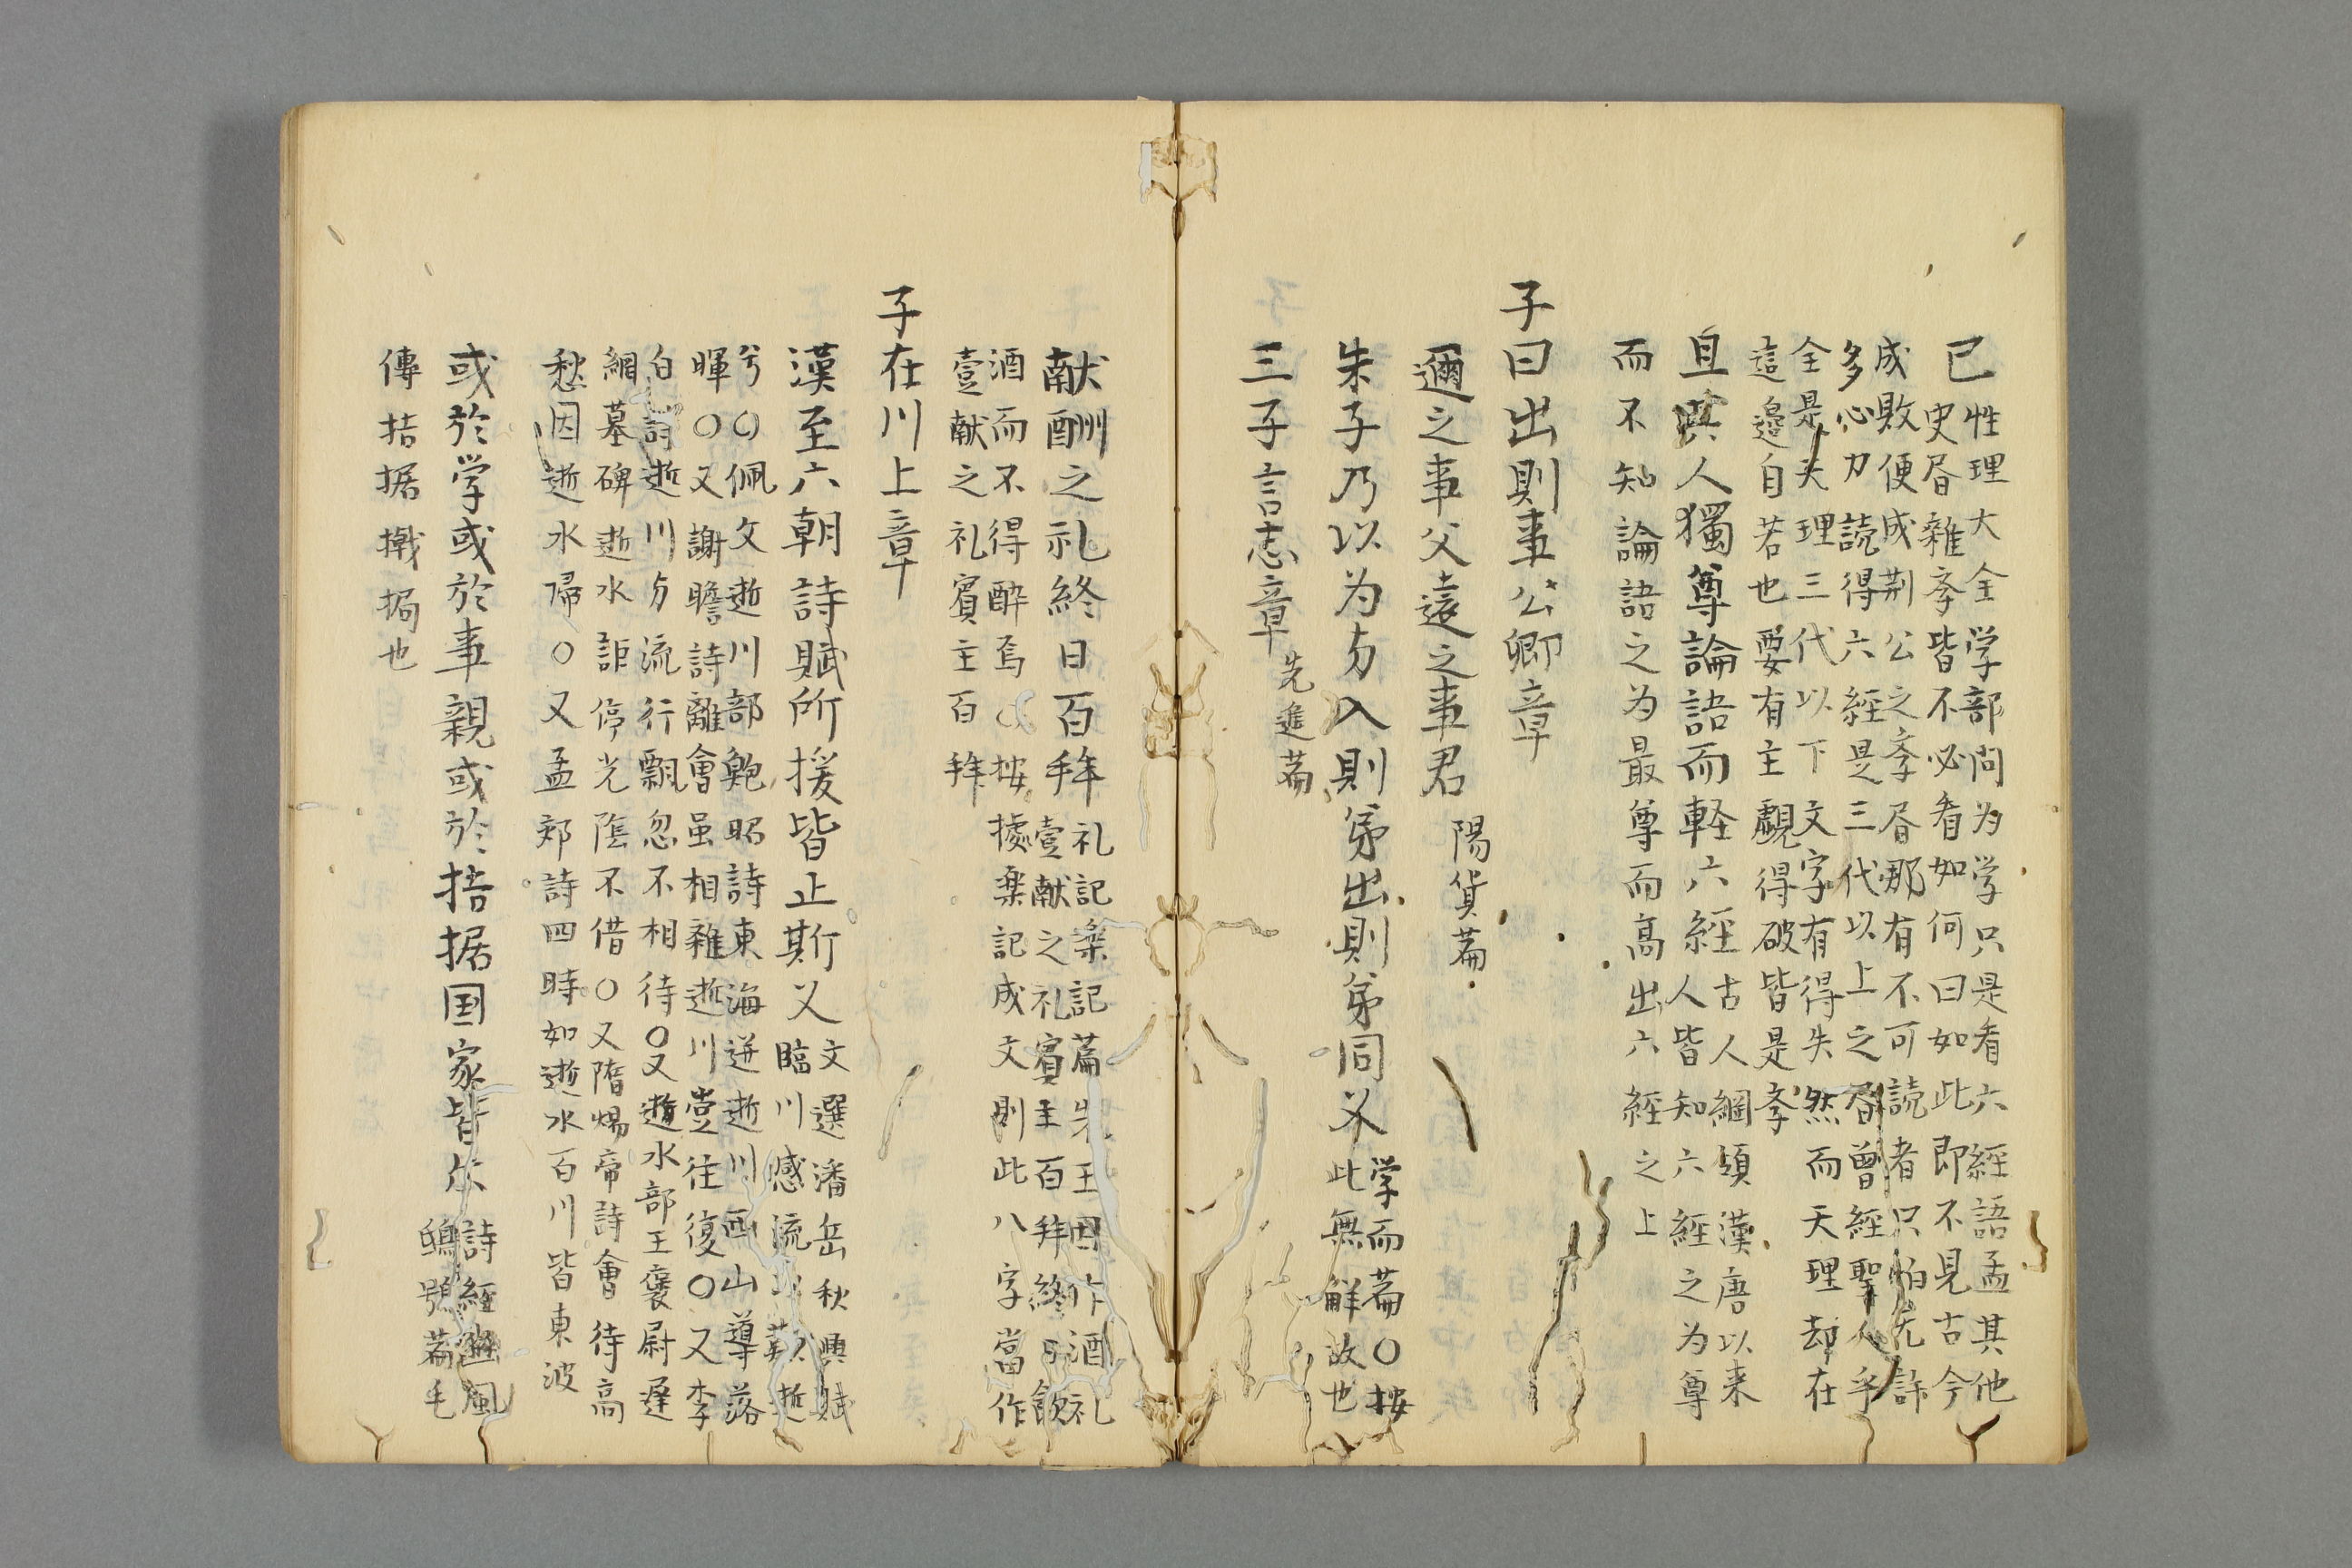 已
性理大全学部問为学只是看六經語孟其他
史㫺雜孝皆不必看如何曰如此即不見古今
成敗便成荆公之孝㫺那有不可読者只怕无許
多心力読得六經是三代以上之㫺曾經聖人手
全是天理三代以下文字有得失然而天理却在
這邉自若也要有主覷得破皆是孝
且與人獨尊論語而軽六經
古人綱領漢唐以来
人皆知六經之为尊
而不知論語之为最尊而髙出六經之上
子曰出則事公卿章
邇之事父遠之事君 陽貨萹
朱子乃以为与入則第出則第同义
学而萹〇按
此無觧故也
三子言志章 先進萹
献酬之礼終日百拜
礼記楽記篇先王因作酒礼
壹献之礼賓主百拜終日飲
酒而不得酔焉〇按據楽記成文則此八字當作
壹献之礼賓主百拜
子在川上章
漢至六朝詩賦所援皆止斯义
文選潘岳秋興賦
臨川感流以歎逝
兮〇佩文逝川部鲍昭詩東海迸逝川西山導落
暉〇又謝瞻詩離會虽相雜逝川豈往復〇又李
白詩逝川与流行飄忽不相待〇又逝水部王褒尉遅
綱墓碑逝水詎停光陰不借〇又隋煬帝詩會待高
愁因逝水帰〇又孟郊詩四時如逝水百川皆東波
或於学或於事親或於拮据国家皆尓
詩經豳風
鴟鴞萹毛
傳拮据撠挶也